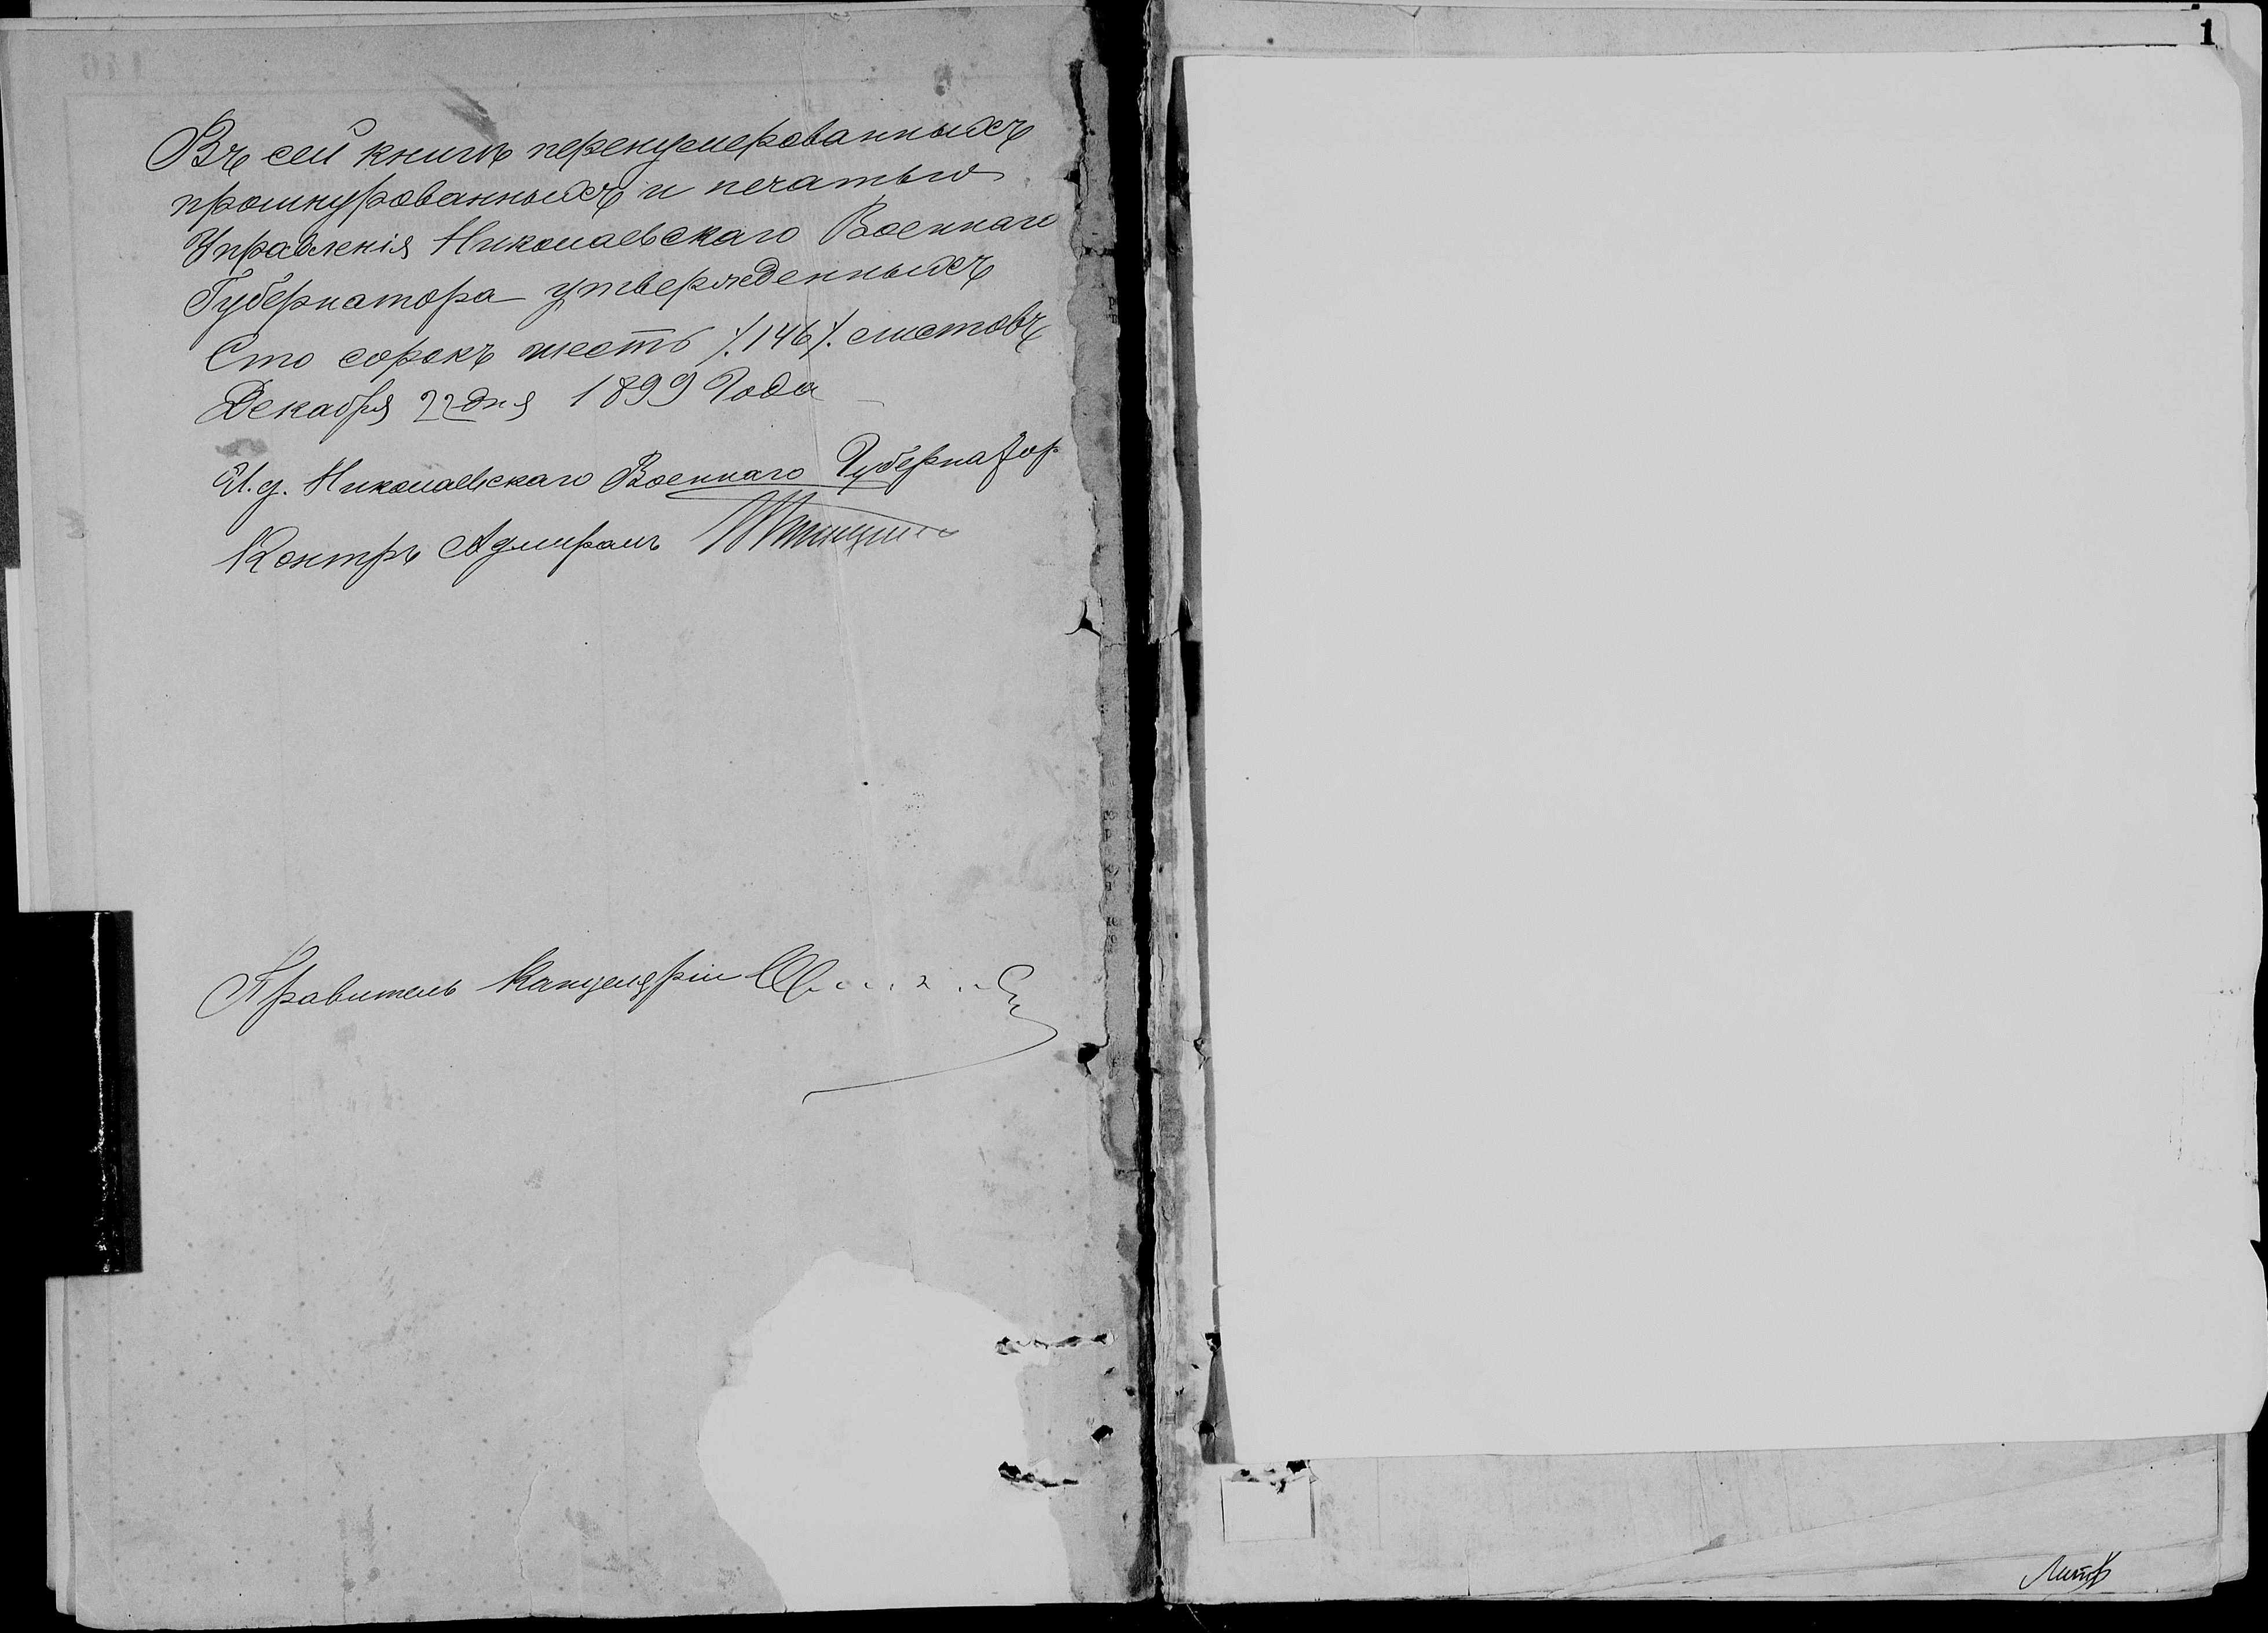 Въ сей книгѣ перенумерованныхъ
прошнурованныхъ и печатью
Управленія Николаевскаго Военнаго
Губернатора утвержденныхъ
Сто сорокъ шесть /.146/. листовъ
Декабря 22 дня 1899 Года
И. д. Николаевскаго Военнаго Губернатор
Контръ Адмиралъ
Правитель Канцеляріи
1